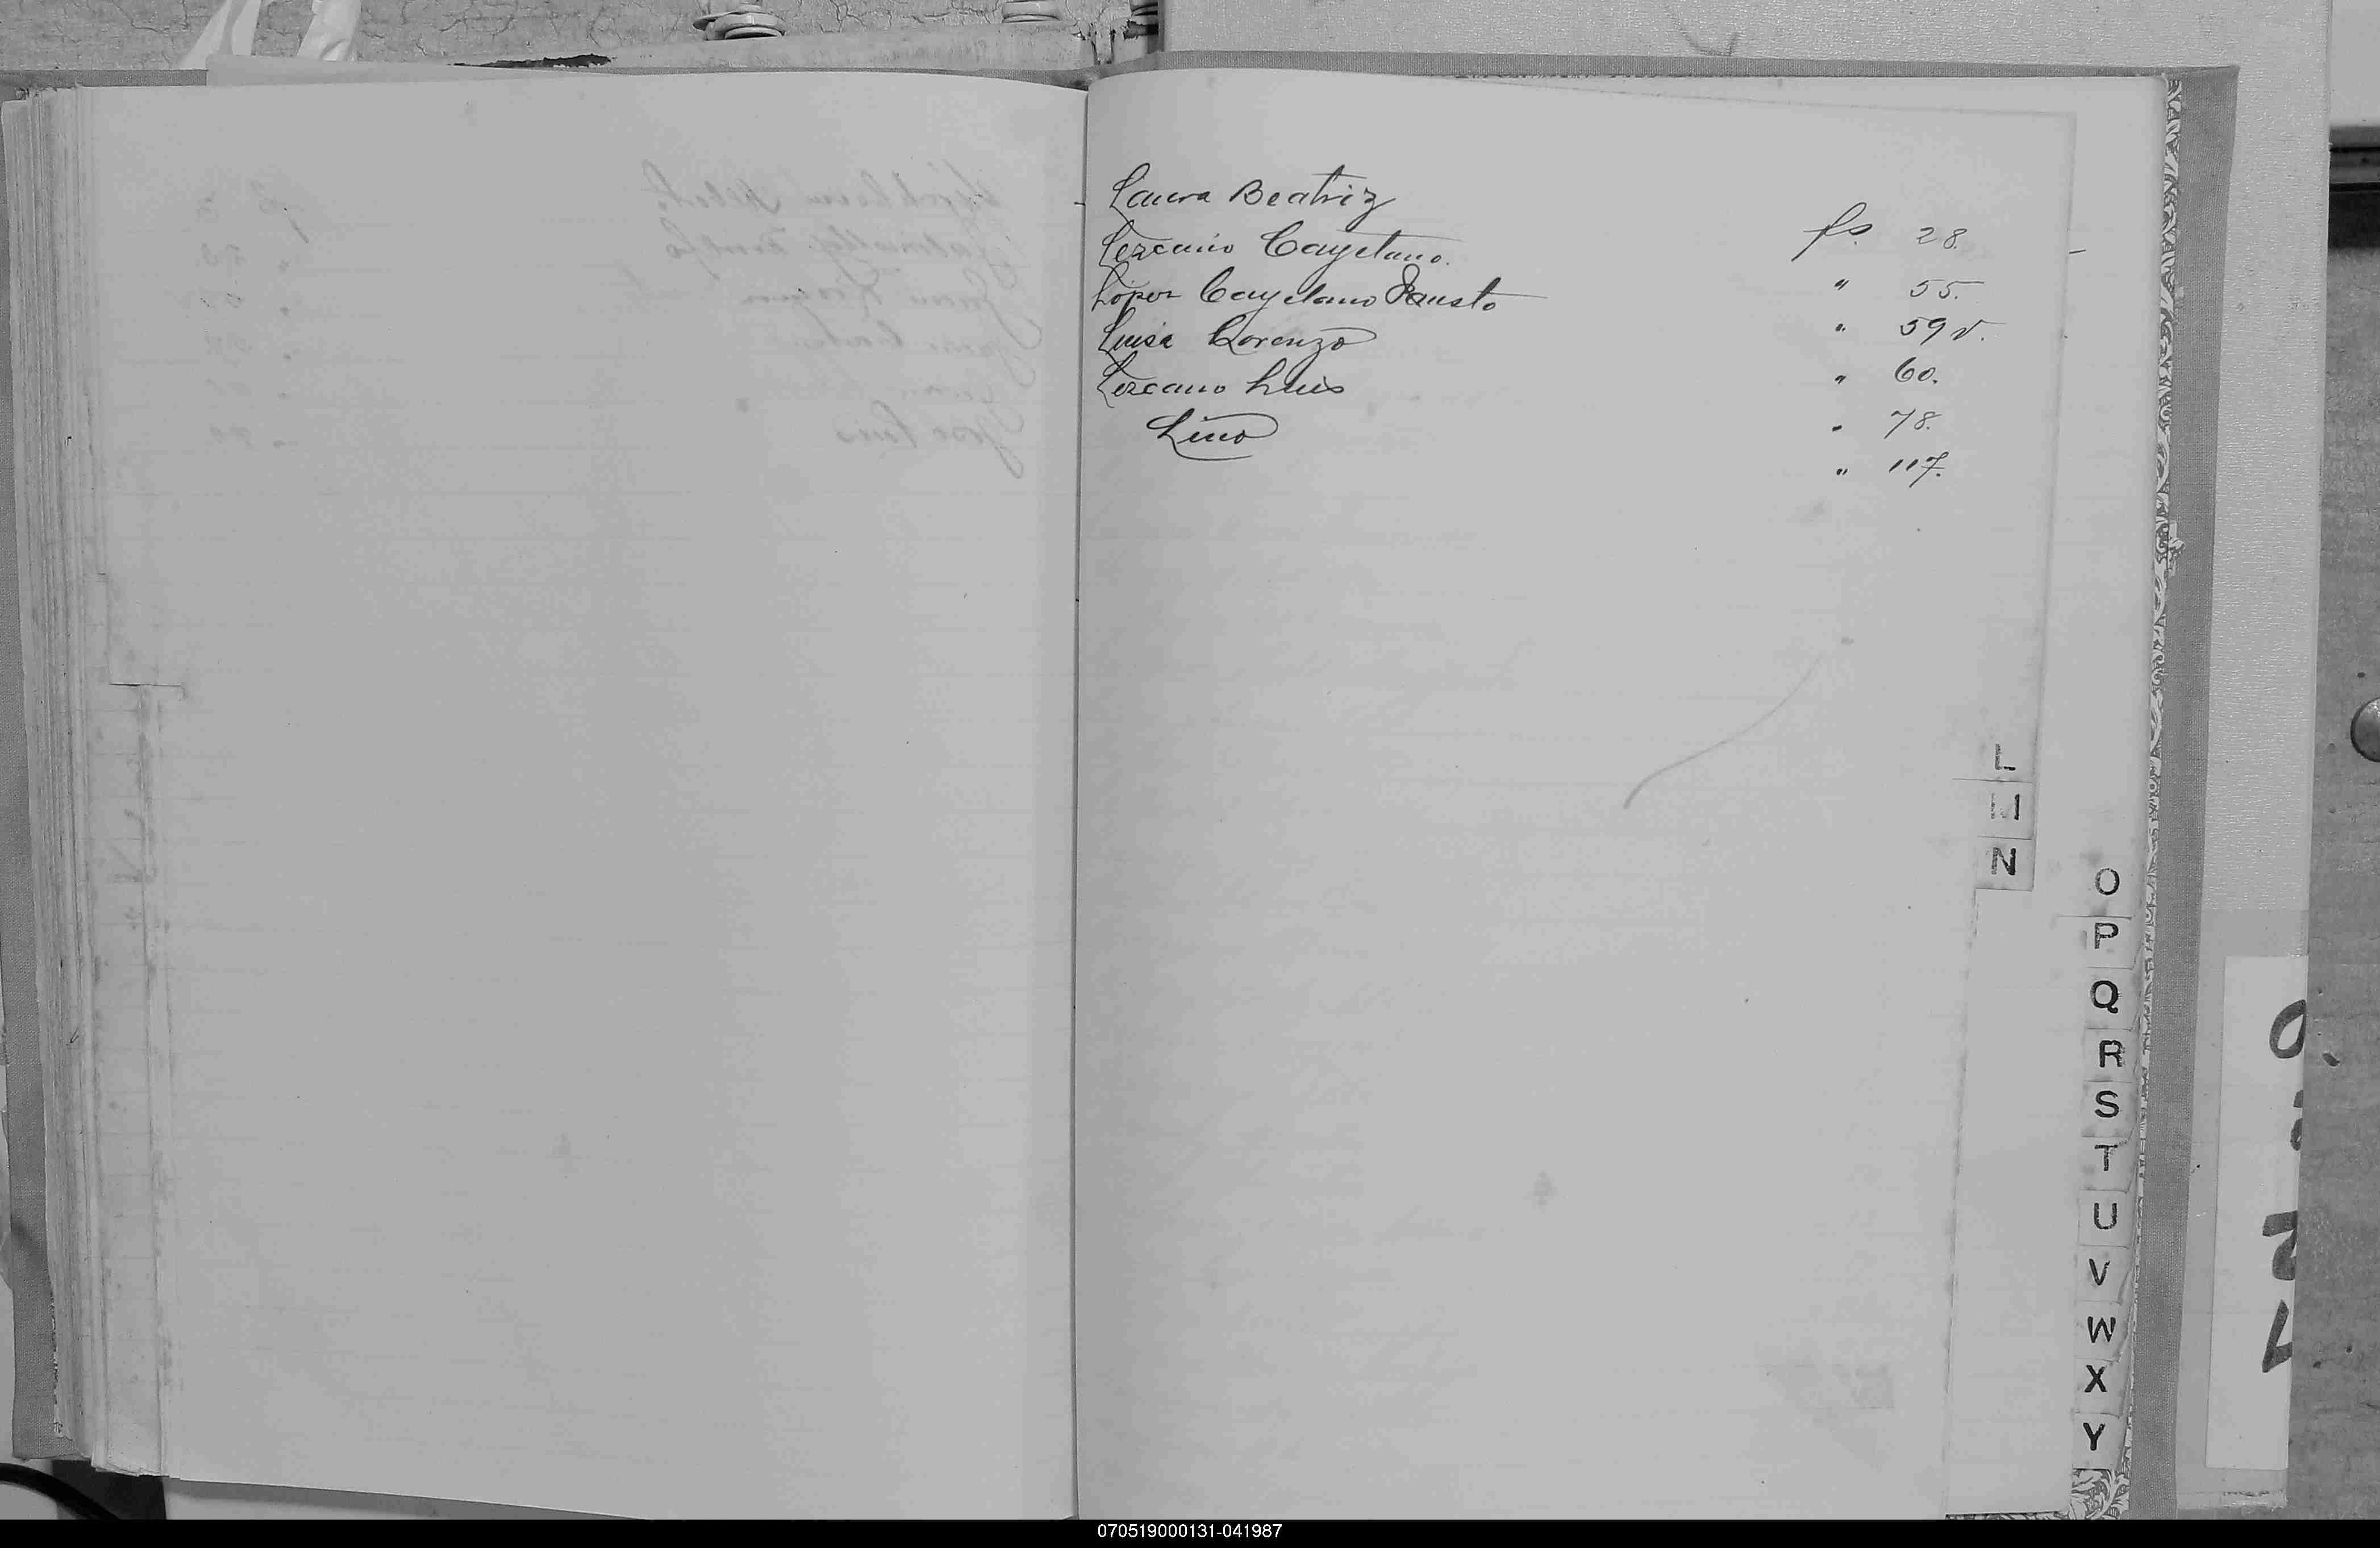 Laura Beatriz fs. 28.
Lezcano Cayetano. " 55.
Lopez Cayetano Fausto " 59 v.
Luisa Lorenzo " 60.
Lezcano Luis " 78.
Lino " 117.
L
M
N
O
P
Q
R
S
T
U
V
W
X
Y
070519000131-041987